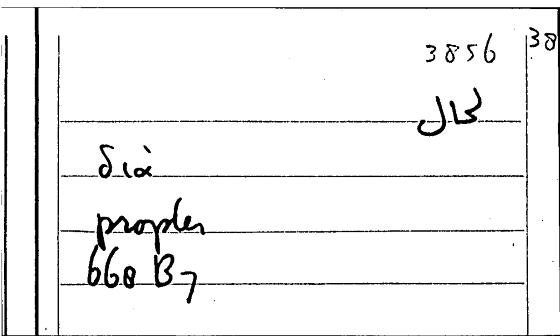 3856
38
لحال
διὰ
propter
668 B7